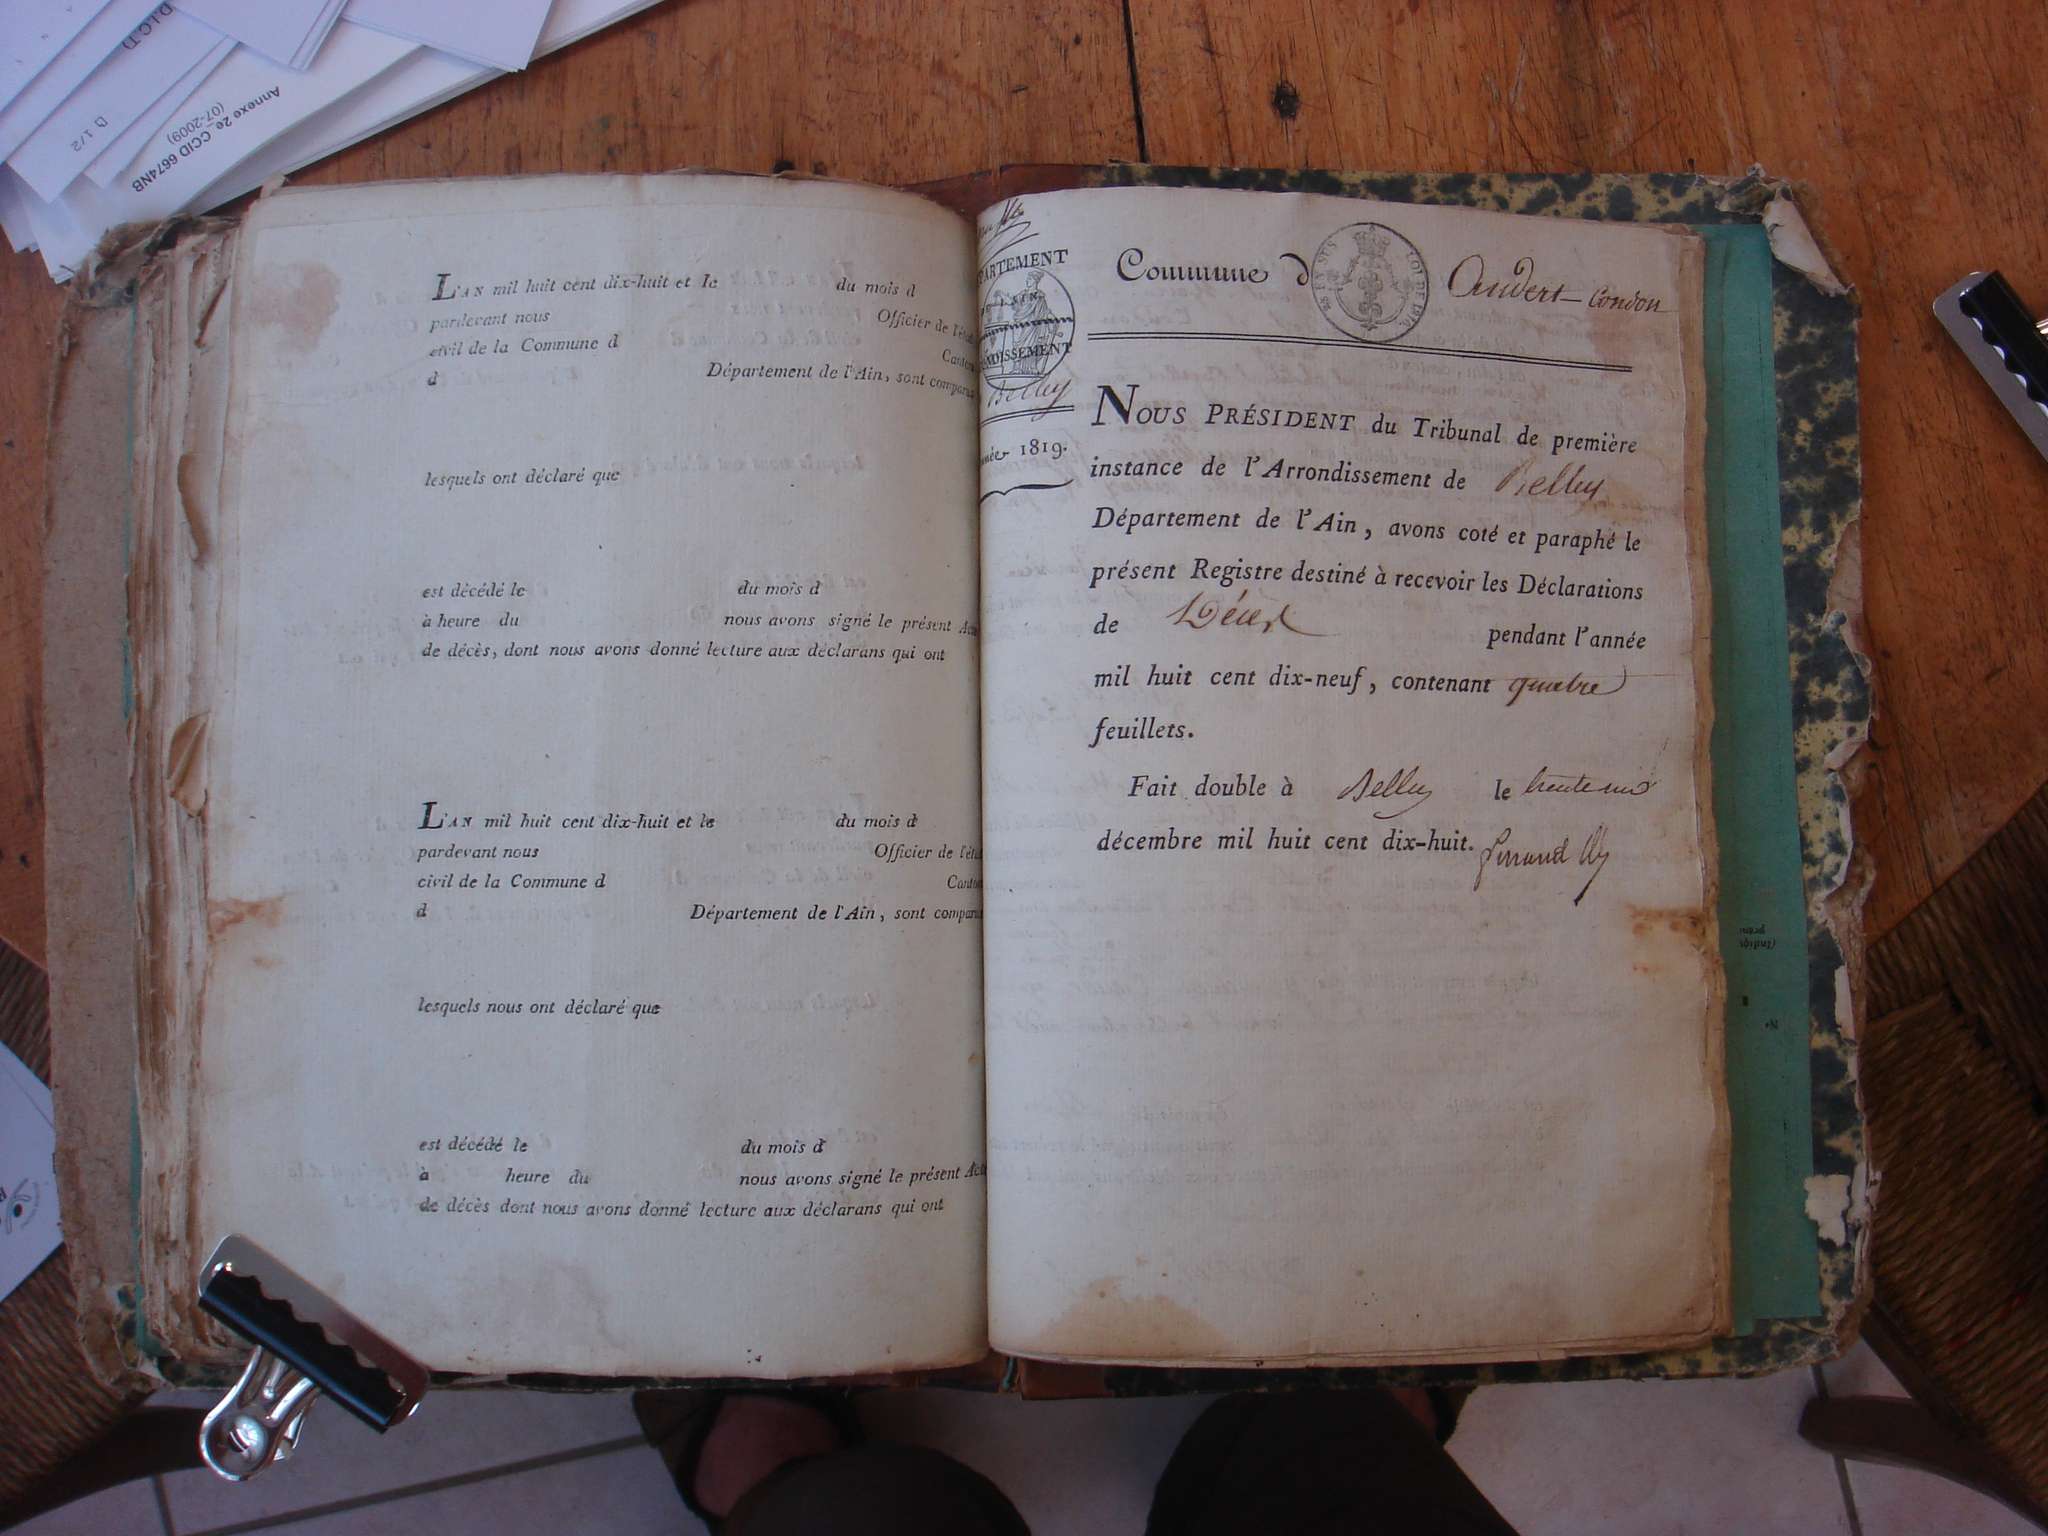 D.I.C.T)
1/2
Annexe 2e_CCID 6674NB
(07-2009)
L'AN mil huit cent dix-huit et le du mois d
pardevant nous Officier de l'état
civil de la Commune d Canton
d Département de l'Ain, sont comparus
lesquels ont déclaré que
est décédé le du mois d
à heure du nous avons signé le présent Acte
de décès, dont nous avons donné lecture aux déclarans qui ont
L'AN mil huit cent dix-huit et le du mois d
pardevant nous Officier de l'état
civil de la Commune d Canton
d Département de l'Ain, sont comparus
lesquels nous ont déclaré que
est décédé le du mois d
à heure du nous avons signé le présent Acte
de décès dont nous avons donné lecture aux déclarans qui ont
PARTEMENT
DE L'AIN
NDISSEMENT
Belley
nnée 1819.
Commune d Andert-Condon
NOUS PRÉSIDENT du Tribunal de première
instance de l'Arrondissement de Belley
Département de l'Ain, avons coté et paraphé le
présent Registre destiné à recevoir les Déclarations
de Décès pendant l'année
mil huit cent dix-neuf, contenant quatre
feuillets.
Fait double à Belley le trente un
décembre mil huit cent dix-huit.